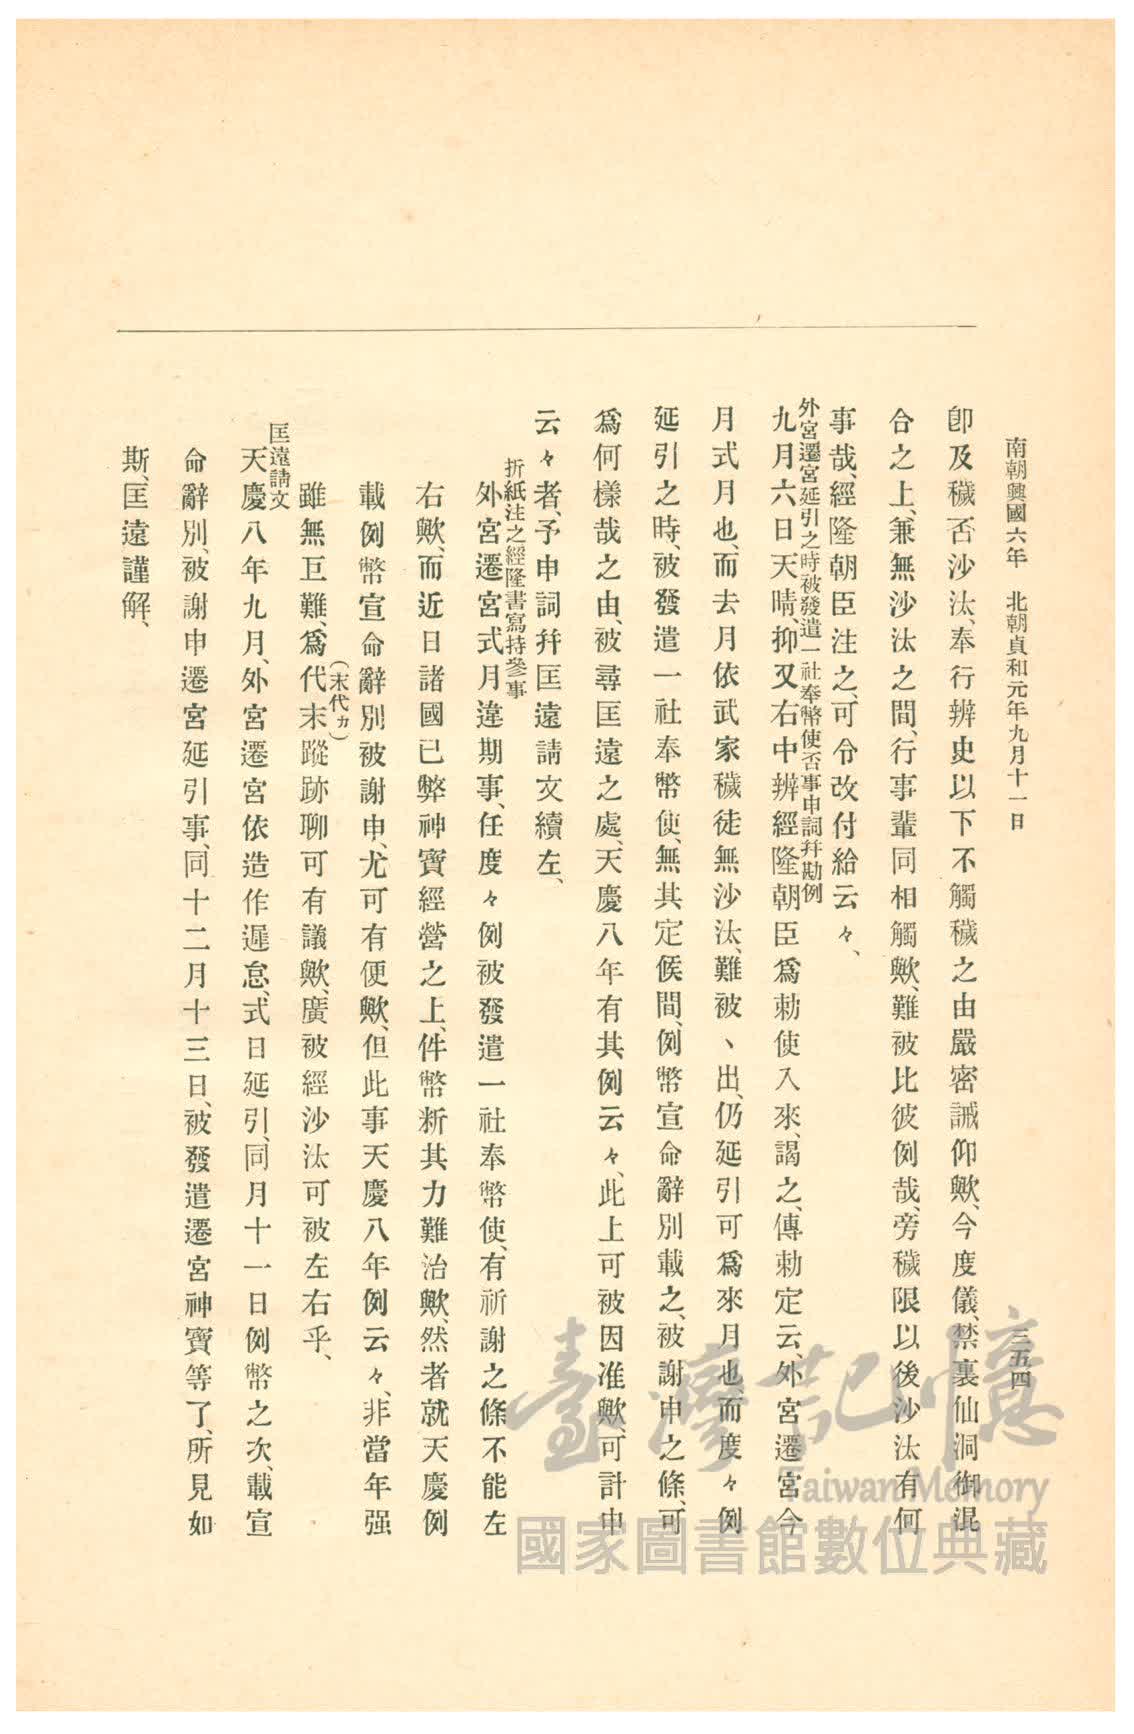 南朝興國六年　北朝貞和元年九月十一日
三五四
卽及穢否沙汰、奉行辨史以下不觸穢之由嚴密誡仰歟、今度儀、禁裏仙洞御混
合之上、兼無沙汰之間、行事輩同相觸歟、難被比彼例哉、旁穢限以後沙汰有何
事哉、經隆朝臣注之、可令改付給云々、
外宮遷宮延引之時被發遣一社奉幣使否事申詞幷勘例
九月六日天晴、抑又右中辨經隆朝臣爲勅使入來、謁之、傳勅定云、外宮遷宮今
月式月也、而去月依武家穢徒無沙汰、難被、出、仍延引可爲來月也而度々例
延引之時、被發遣一社奉幣使、無其定候間、例幣宣命辭別載之、被謝申之條、可
爲何樣哉之由、被尋匡遠之處、天慶八年有其例云々、此上可被因准歟、可計申
云々者、予申詞幷匡遠請文續左、
折紙注之經隆書寫持參事
外宮遷宮式月違期事、任度々例被發遣一社奉幣使、有祈謝之條不能左
右歟、而近日諸國已弊神寶經營之上、件幣䉼其力難治歟、然者就天慶例
載例幣宣命辭別被謝申、尤可有便歟、但此事天慶八年例云々、非當年强
(末代カ)
雖無巨難、爲代末蹤跡聊可有議歟、廣被經沙汰可被左右乎、
匡遠請文
天慶八年九月、外宮遷宮依造作遲怠、式日延引、同月十一日例幣之次、載宣
命辭別、被謝申遷宮延引事、同十二月十三日、被發遣遷宮神寶等了、所見如
斯、匡遠謹解、
臺灣記憶
Taiwan Memory
國家圖書館數位典藏